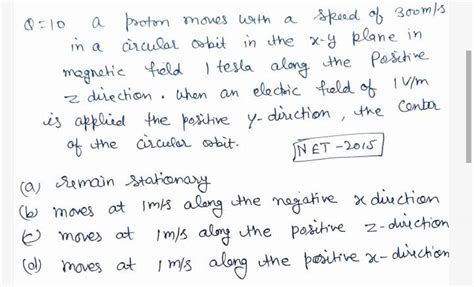 Q=10 a proton moves with a speed of 300m/s
in a circular orbit in the x-y plane in
magnetic field 1 tesla along the Positive
z direction. when an electric field of 1V/m
is applied the positive y-direction, the center
of the circular orbit.
NET-2015
(a) remain stationary
(b) moves at 1m/s along the negative x direction
(c) moves at 1m/s along the positive z-direction
(d) moves at 1 m/s along the positive x-direction